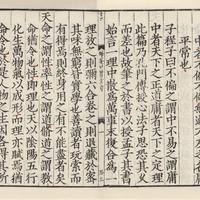 中者不偏不倚無過不及之名庸
平常也
子程子曰不偏之謂中不易之謂庸
中者天下之正道庸者天下之定理
此篇乃孔門傳授心法子思恐其久
而差也故筆之於書以授孟子其書
始言一理中散為萬事末復合為一
理放之則彌六合卷之則退藏於密
其味無窮皆實學也善讀者玩索而
有得焉則終身用之有不能盡者矣
天命之謂性率性之謂道脩道之謂教
命猶令也性即理也天以陰陽五行
化生萬物氣以成形而理亦賦焉猶
命令也於是人物之生因各得其所